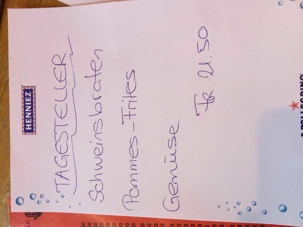 HENNIEZ
TAGESTELLER
Schweinsbraten
Pommes-Frites
Gemüse
Fr. 21.50